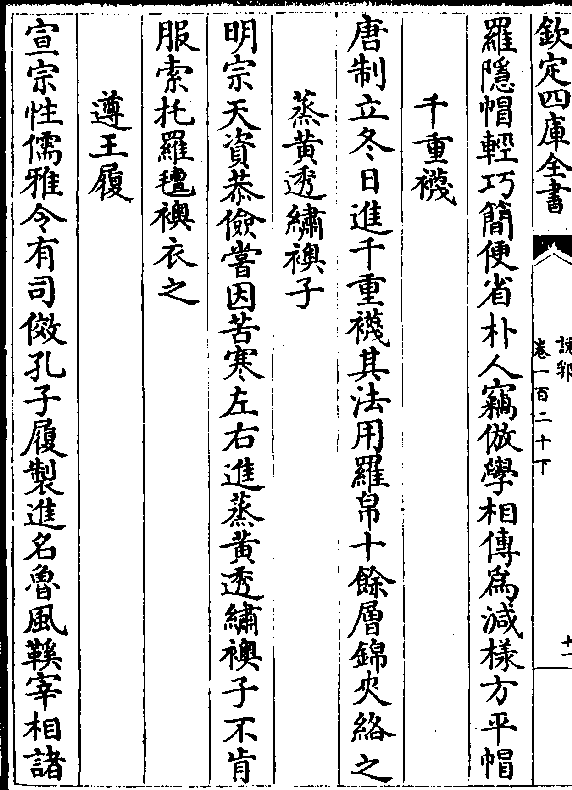 欽定四庫全書
說郛
卷一百二十下
十一
羅隱帽輕巧簡便省朴人竊倣學相傳爲減樣方平帽
千重襪
唐制立冬日進千重襪其法用羅帛十餘層錦夾絡之
蒸黄透繡襖子
明宗天資恭儉嘗因苦寒左右進蒸黄透繡襖子不肯
服索托羅氊襖衣之
遵王履
宣宗性儒雅令有司倣孔子履製進名魯風鞵宰相諸